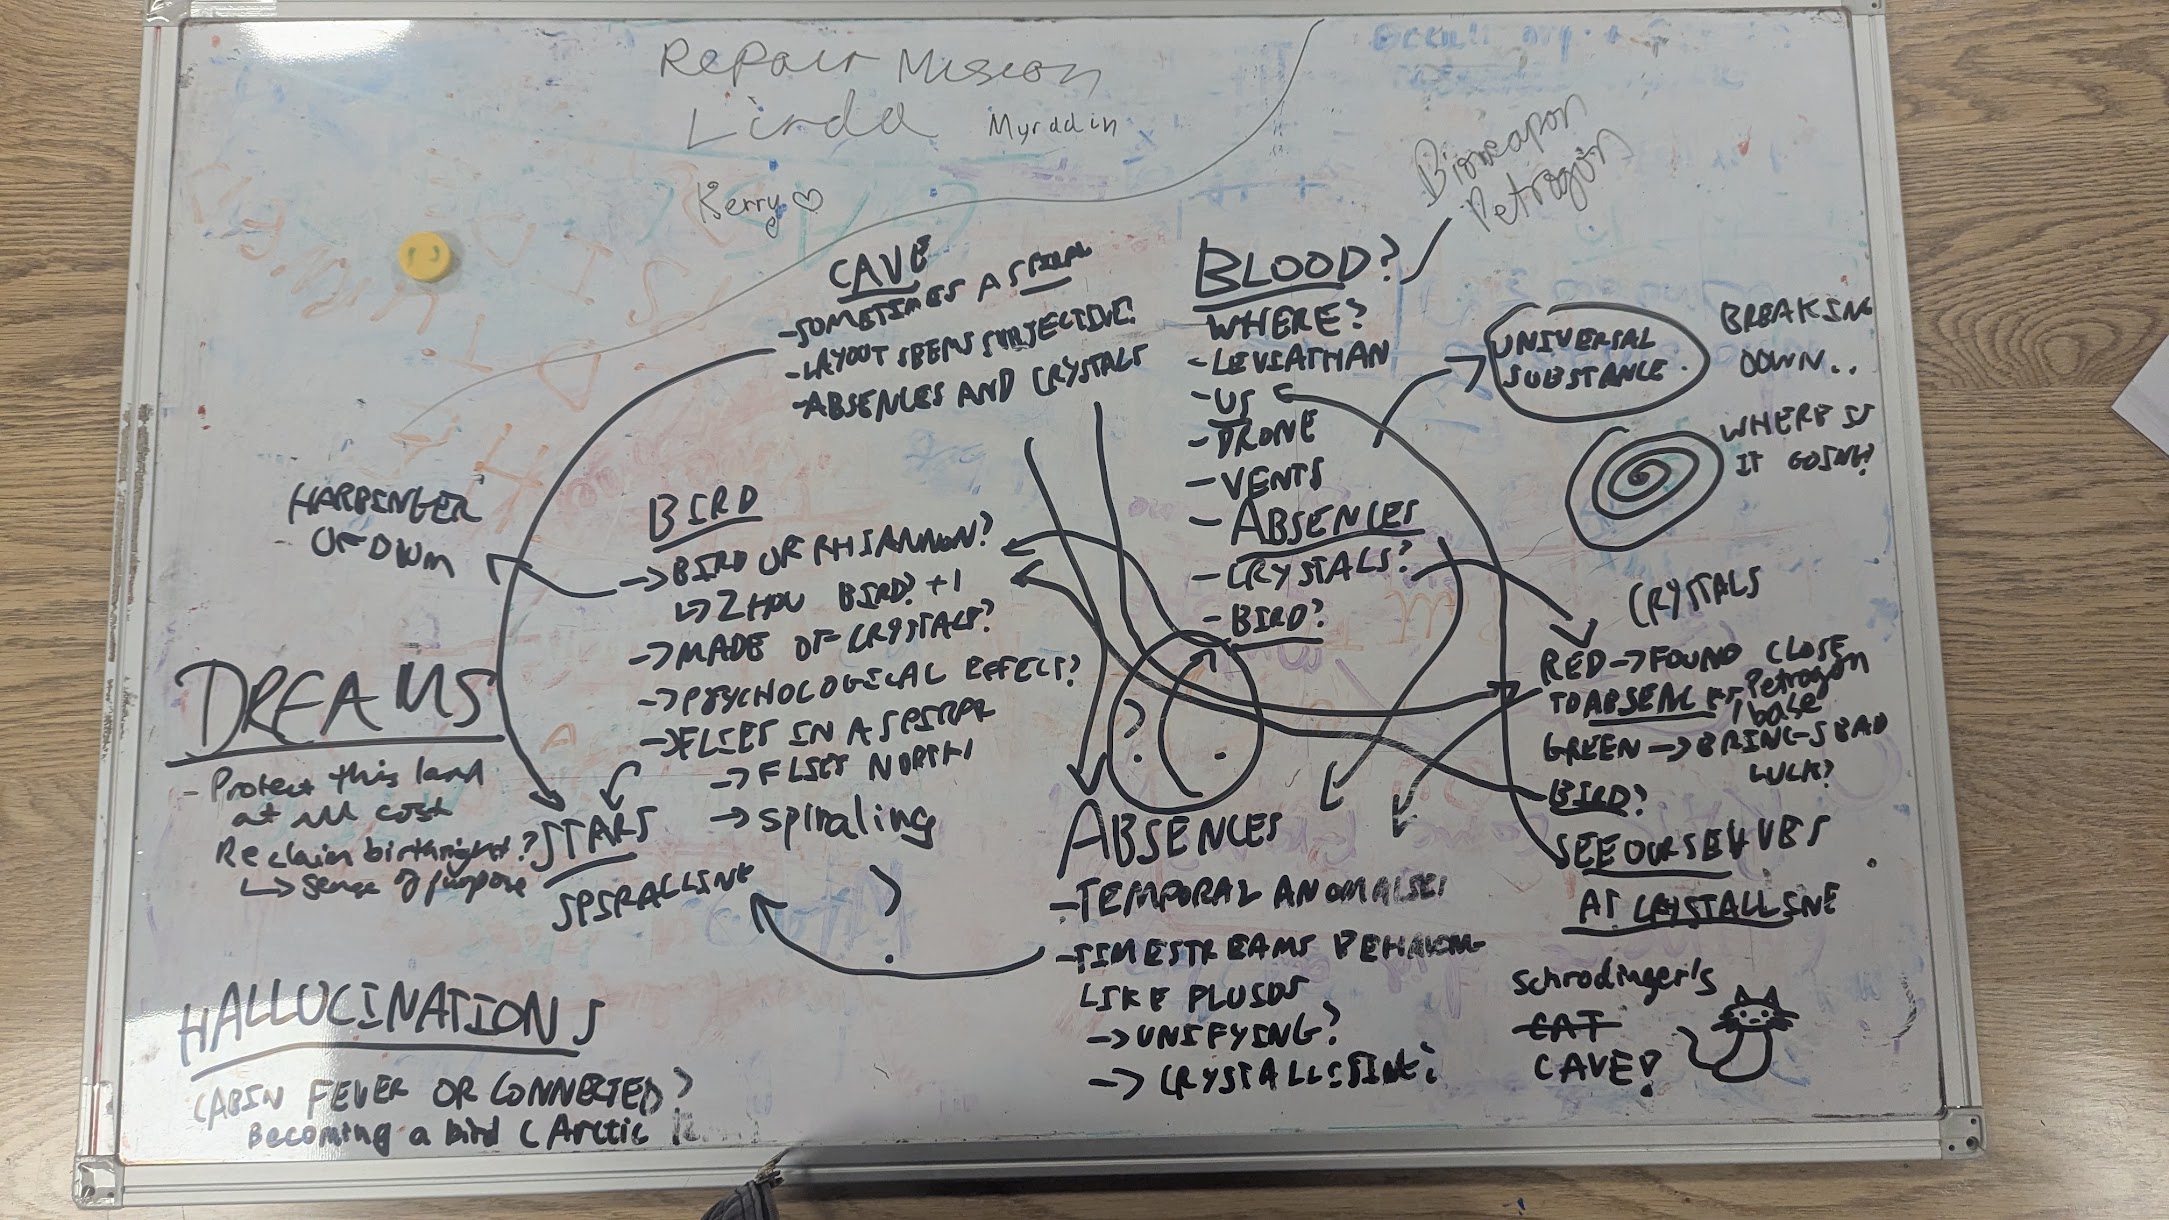 Repair Mission
Linda Myraddin
Kerry
Bioweapon
Petrogon
CAVE
-SOMETIMES A SPIRAL
-LAYOUT SEEMS SUBJECTIVE?
-ABSENCES AND CRYSTALS
BLOOD?
WHERE?
-LEVIATHAN
-US
-DRONE
-VENTS
-ABSENCES
-CRYSTALS?
-BIRD?
UNIVERSAL
SUBSTANCE.
BREAKING
DOWN..
WHERE IS
IT GOING?
HARBINGER
OF OWM
BIRD
->BIRD OF RHIANNON?
↳ZHOU BIRD? +1
->MADE OF CRYSTALS?
->PSYCHOLOGICAL EFFECT?
->FLIES IN A SPIRAL
->FLIES NORTH
->spiraling
STARS
SPIRALLING
?
DREAMS
- Protect this land
at all cost
Reclaim birthright?
↳ sense of purpose
HALLUCINATIONS
CABIN FEVER OR CONNECTED?
Becoming a bird (Arctic
ABSENCES
-TEMPORAL ANOMALIES
-TIMESTREAMS BEHAVIOUR
LIKE FLUIDS
->UNIFYING?
->CRYSTALLISING?
CRYSTALS
RED->FOUND CLOSE
TO ABSENCES, Petrogon
base
GREEN->BRINGS BAD
LUCK?
BIRD?
SEE OURSELVES
AT CRYSTALLINE
Schrodinger's
CAT
CAVE!